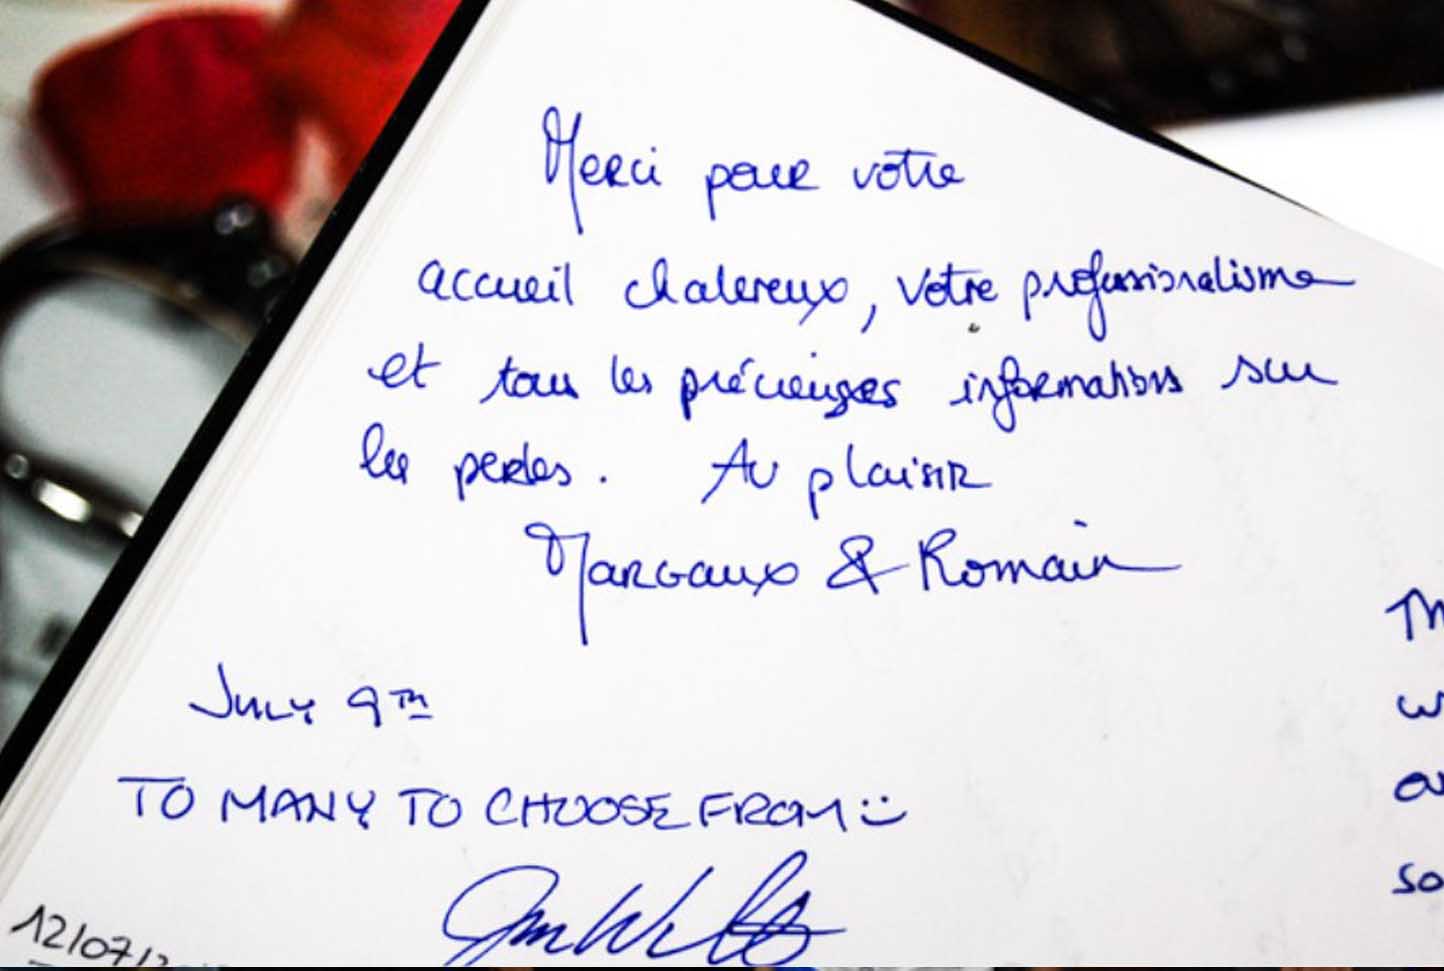 Merci pour votre
accueil chalereux, votre professionalisme
et tous les précieuses informations sur
les perles. Au plaisir
Margaux & Romain
July 9TH
TO MANY TO CHOOSE FROM :)
12/07/2
Th
w
so